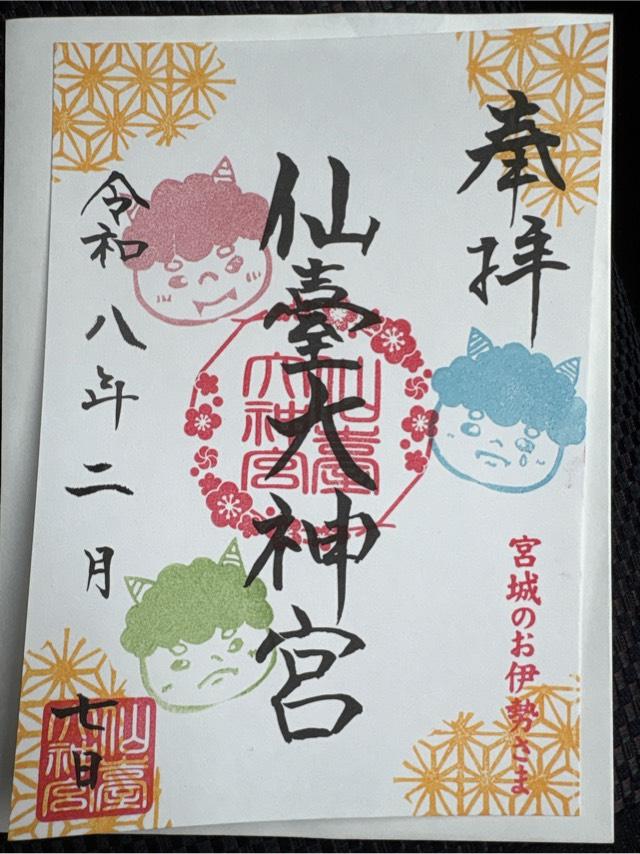 奉拝
宮城のお伊勢さま
仙臺大神宮
仙臺
大神宮
令和八年二月
七日
仙臺
大神宮